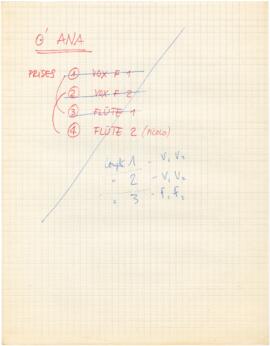 O' ANA
PRISES ① VOX F 1
② VOX F 2
③ FLÛTE 1
④ FLÛTE 2 (PICCOLO)
couplet 1 - V₁ V₂
" 2 - V₁ V₂
" 3 - f₁ f₂